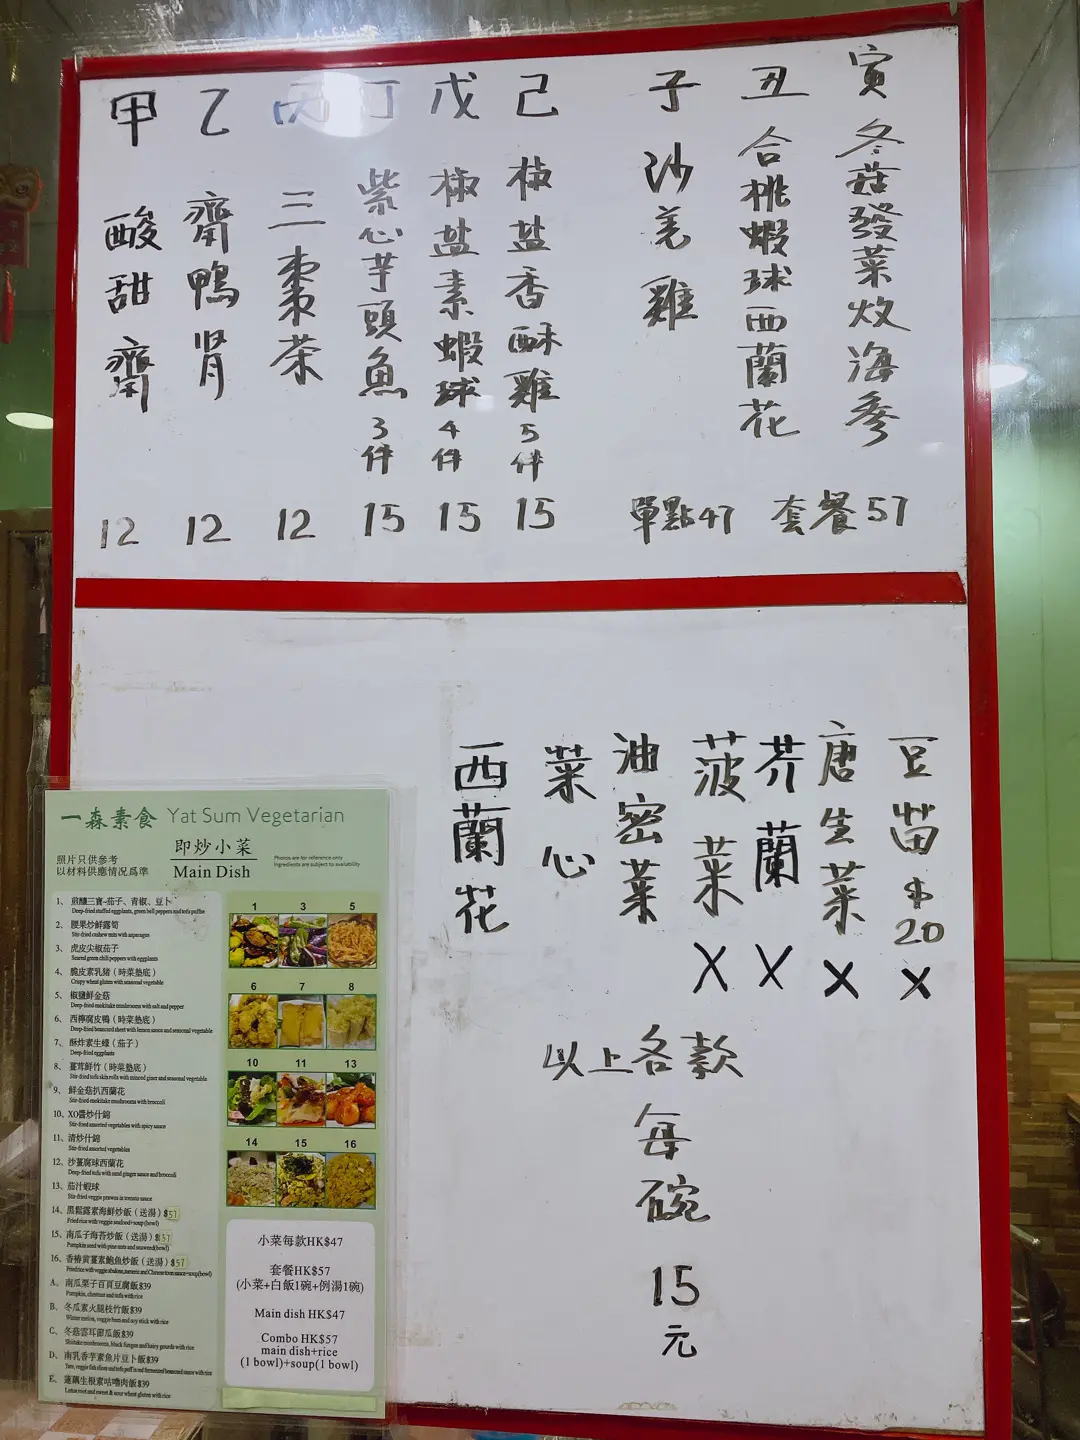 甲 酸甜齋 12
乙 齋鴨腎 12
丙 三棗茶 12
丁 紫心芋頭魚 3件 15
戊 椒盐素蝦球 4件 15
己 椒盐香酥雞 5件 15
子 沙羌雞
丑 合桃蝦球西蘭花
寅 冬菇發菜炆海參
單點47 套餐57
西蘭花
菜心
油密菜
菠菜 X
芥蘭 X
唐生菜 X
豆苗 $20 X
以上各款
每碗
15
元
一森素食 Yat Sum Vegetarian
即炒小菜
Main Dish
照片只供參考
以材料供應情况爲準
Photos are for reference only
Ingredients are subject to availability
1、煎釀三寶-茄子、青椒、豆卜
Deep-fried stuffed eggplants, green bell peppers and tofu puffs
2、腰果炒鮮露筍
Stir-fried cashew nuts with asparagus
3、虎皮尖椒茄子
Seared green chili peppers with eggplants
4、脆皮素乳豬（時菜墊底）
Crispy wheat gluten with seasonal vegetable
5、椒鹽鮮金菇
Deep-fried enokitake mushrooms with salt and pepper
6、西檸腐皮鴨（時菜墊底）
Deep-fried beancurd sheet with lemon sauce and seasonal vegetable
7、酥炸素生蠔（茄子）
Deep-fried eggplants
8、薑茸鮮竹（時菜墊底）
Stir-fried tofu skin rolls with minced ginger and seasonal vegetable
9、鮮金菇扒西蘭花
Stir-fried enokitake mushrooms with broccoli
10、XO醬炒什錦
Stir-fried assorted vegetables with spicy sauce
11、清炒什錦
Stir-fried assorted vegetables
12、沙薑腐球西蘭花
Deep-fried tofu with sand ginger sauce and broccoli
13、茄汁蝦球
Stir-fried veggie prawns in tomato sauce
14、黑鬆露素海鮮炒飯（送湯）$57
Fried rice with veggie seafood+soup(bowl)
15、南瓜子海苔炒飯（送湯）$57
Pumpkin seed with pine nuts and seaweed(bowl)
16、香椿黄薑素鮑魚炒飯（送湯）$57
A、南瓜栗子百頁豆腐飯$39
Pumpkin, chestnut and tofu with rice
B、冬瓜素火腿枝竹飯$39
Winter melon, veggie ham and soy stick with rice
C、冬菇雲耳節瓜飯$39
Shiitake mushrooms, black fungus and hairy gourds with rice
D、南乳香芋素魚片豆卜飯$39
Taro, veggie fish slices and tofu puff in red fermented beancurd sauce with rice
E、蓮藕生根素咕嚕肉飯$39
Lotus root and sweet & sour wheat gluten with rice
1 3 5
6 7 8
10 11 13
14 15 16
小菜每款HK$47
套餐HK$57
(小菜+白飯1碗+例湯1碗)
Main dish HK$47
Combo HK$57
main dish+rice
(1 bowl)+soup(1 bowl)